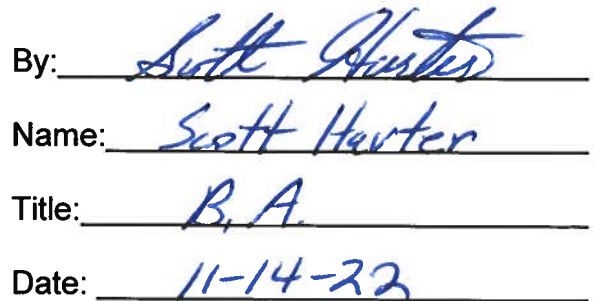 By: Scott Harter
Name: Scott Harter
Title: B.A.
Date: 11-14-22